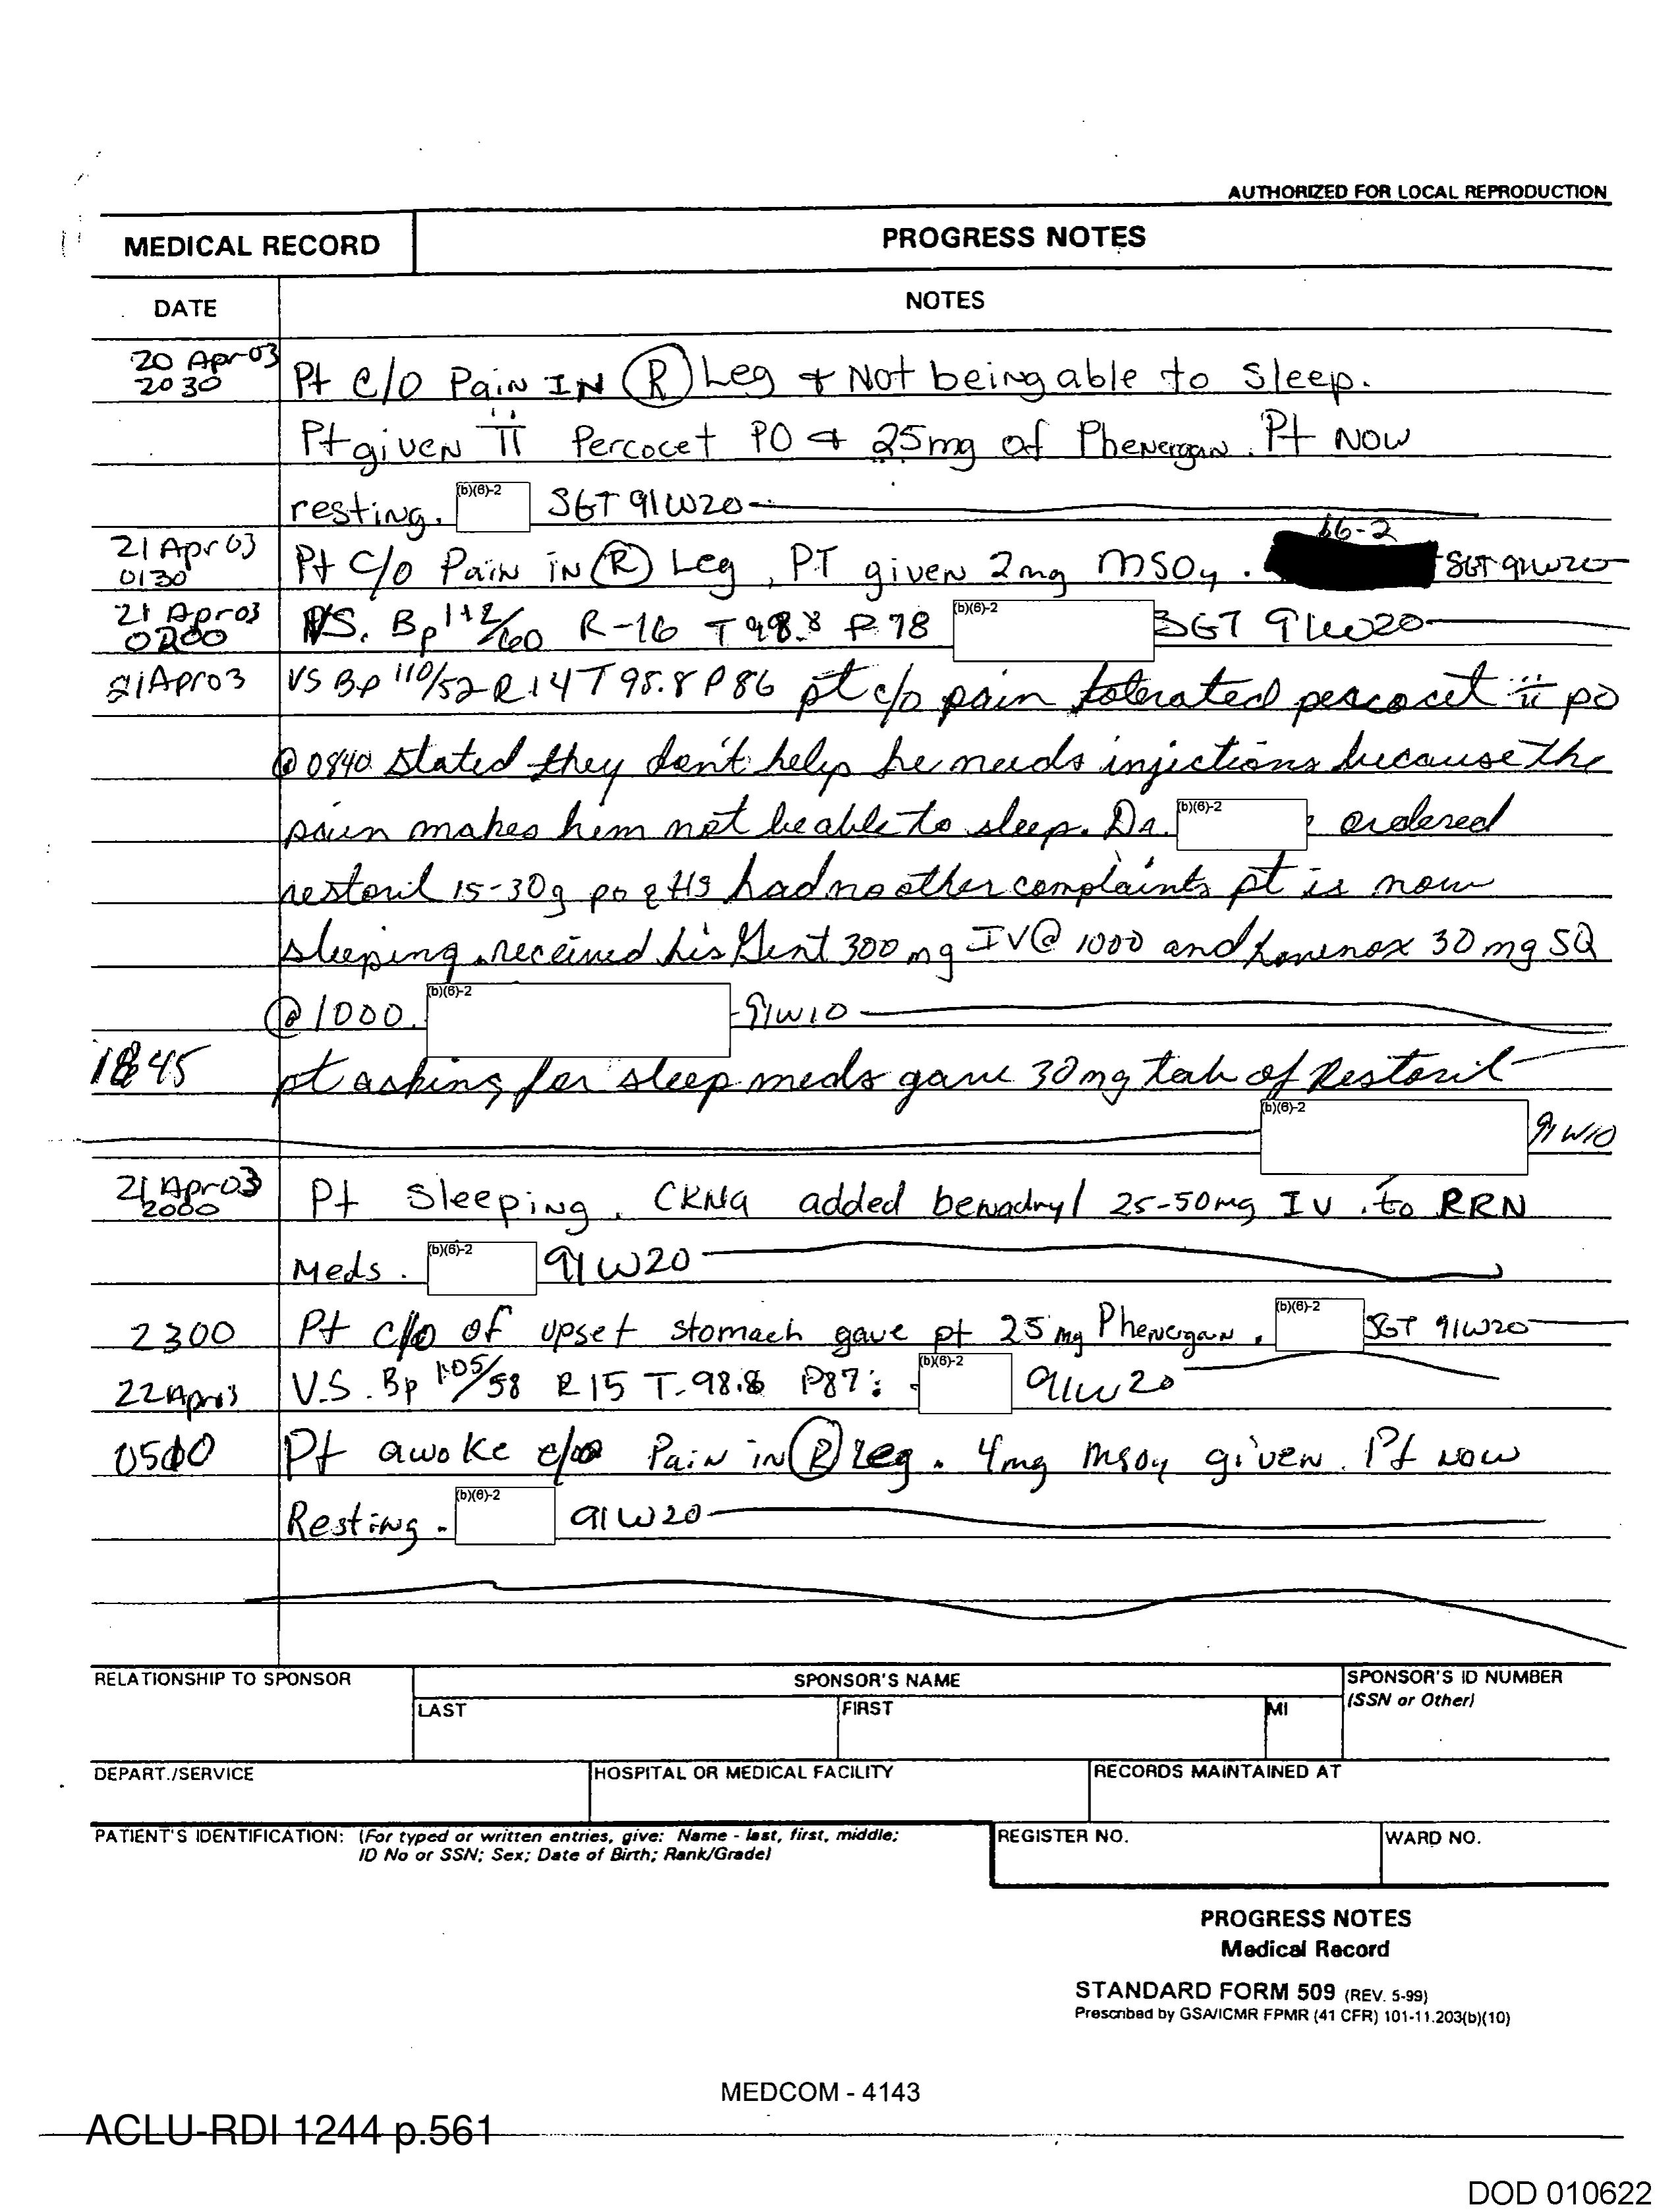 AUTHORIZED FOR LOCAL REPRODUCTION
MEDICAL RECORD PROGRESS NOTES
DATE NOTES
20 Apr 03
2030 Pt c/o Pain IN (R) Leg + Not being able to sleep.
Pt given ii Percocet PO + 25mg of Phenergan. Pt NOW
resting. (b)(6)-2 SGT 91W20
b6-2
21 Apr 03
0130 Pt c/o Pain in (R) Leg, PT given 2mg MSO4. SGT 91W20
21 Apr 03
0200 VS. Bp 112/60 R-16 T 98.8 P 78 (b)(6)-2 SGT 91W20
21 Apr 03 VS BP 110/52 R 14 T 98.8 P 86 pt c/o pain tolerated percocet ii po
@ 0840 stated they don't help he needs injections because the
pain makes him not be able to sleep. Dr. (b)(6)-2 ordered
restoril 15-30g po q HS had no other complaints pt is now
sleeping. received his Gent 300 mg IV @ 1000 and Lovenox 30 mg SQ
@ 1000. (b)(6)-2 91W10
1845 pt asking for sleep meds gave 30mg tab of Restoril
(b)(6)-2 91W10
21 Apr 03
2000 Pt Sleeping. added benadryl 25-50mg IV. to RRN
Meds. (b)(6)-2 91W20
2300 Pt c/o of upset stomach gave pt 25 mg Phenergan. (b)(6)-2 SGT 91W20
22 Apr 03 V.S. Bp 105/58 R 15 T-98.8 P87: (b)(6)-2 91W20
0500 Pt awoke c/o Pain in (R) Leg. 4mg MSO4 given. Pt NOW
Resting. (b)(6)-2 91W20
RELATIONSHIP TO SPONSOR SPONSOR'S NAME SPONSOR'S ID NUMBER
(SSN or Other)
LAST FIRST MI
DEPART./SERVICE HOSPITAL OR MEDICAL FACILITY RECORDS MAINTAINED AT
PATIENT'S IDENTIFICATION: (For typed or written entries, give: Name - last, first, middle;
ID No or SSN; Sex; Date of Birth; Rank/Grade)
REGISTER NO. WARD NO.
PROGRESS NOTES
Medical Record
STANDARD FORM 509 (REV. 5-99)
Prescribed by GSA/ICMR FPMR (41 CFR) 101-11.203(b)(10)
MEDCOM - 4143
ACLU-RDI 1244 p.561
DOD 010622